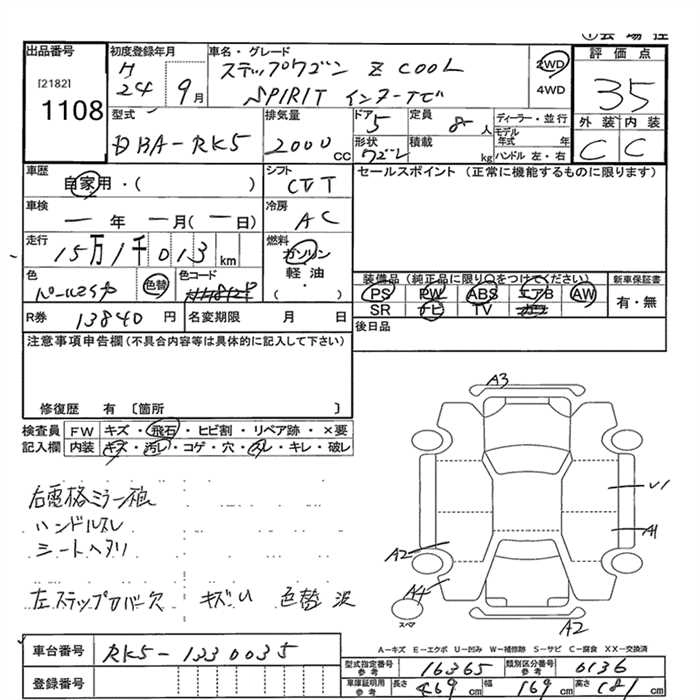 出品番号
[2182]
1108
初度登録年月
H 24 9月
車名・グレード
ステップワゴン Z COOL
SPIRIT インターナビ
2WD
4WD
評価点
35
外装 内装
C C
型式
DBA-RK5
排気量
2000 cc
ドア 5
形状 ワゴン
定員 8 人
積載 kg
ディーラー・並行
モデル年式 年
ハンドル 左・右
車歴
自家用・( )
シフト
CVT
車検
— 年 — 月( — 日)
冷房
AC
走行
15万1千013 km
燃料
ガソリン
軽油
( ・ )
色
パールミツタ 色替
色コード
R券 13840 円
名変期限 月 日
セールスポイント (正常に機能するものに限ります)
装備品 (純正品に限り○をつけてください)
PS PW ABS エアB AW
SR ナビ TV
新車保証書
有・無
後日品
注意事項申告欄(不具合内容等は具体的に記入して下さい)
修復歴 有 〔箇所 〕
検査員記入欄
FW キズ・飛石・ヒビ割・リペア跡・×要
内装 キズ・汚レ・コゲ・穴・スレ・キレ・破レ
右電格ミラー
ハンドルスレ
シートヘタリ
左ステップカバー欠 キズU 色替
A3
U1
A1
A2
A4
スペア
A2
A-キズ E-エクボ U-凹み W-補修跡 S-サビ C-腐食 XX-交換済
車台番号 RK5-1330035
登録番号
型式指定番号 参考 16365
類別区分番号 参考 0136
車庫証明用 参考 長さ 469 cm 幅 169 cm 高さ 181 cm